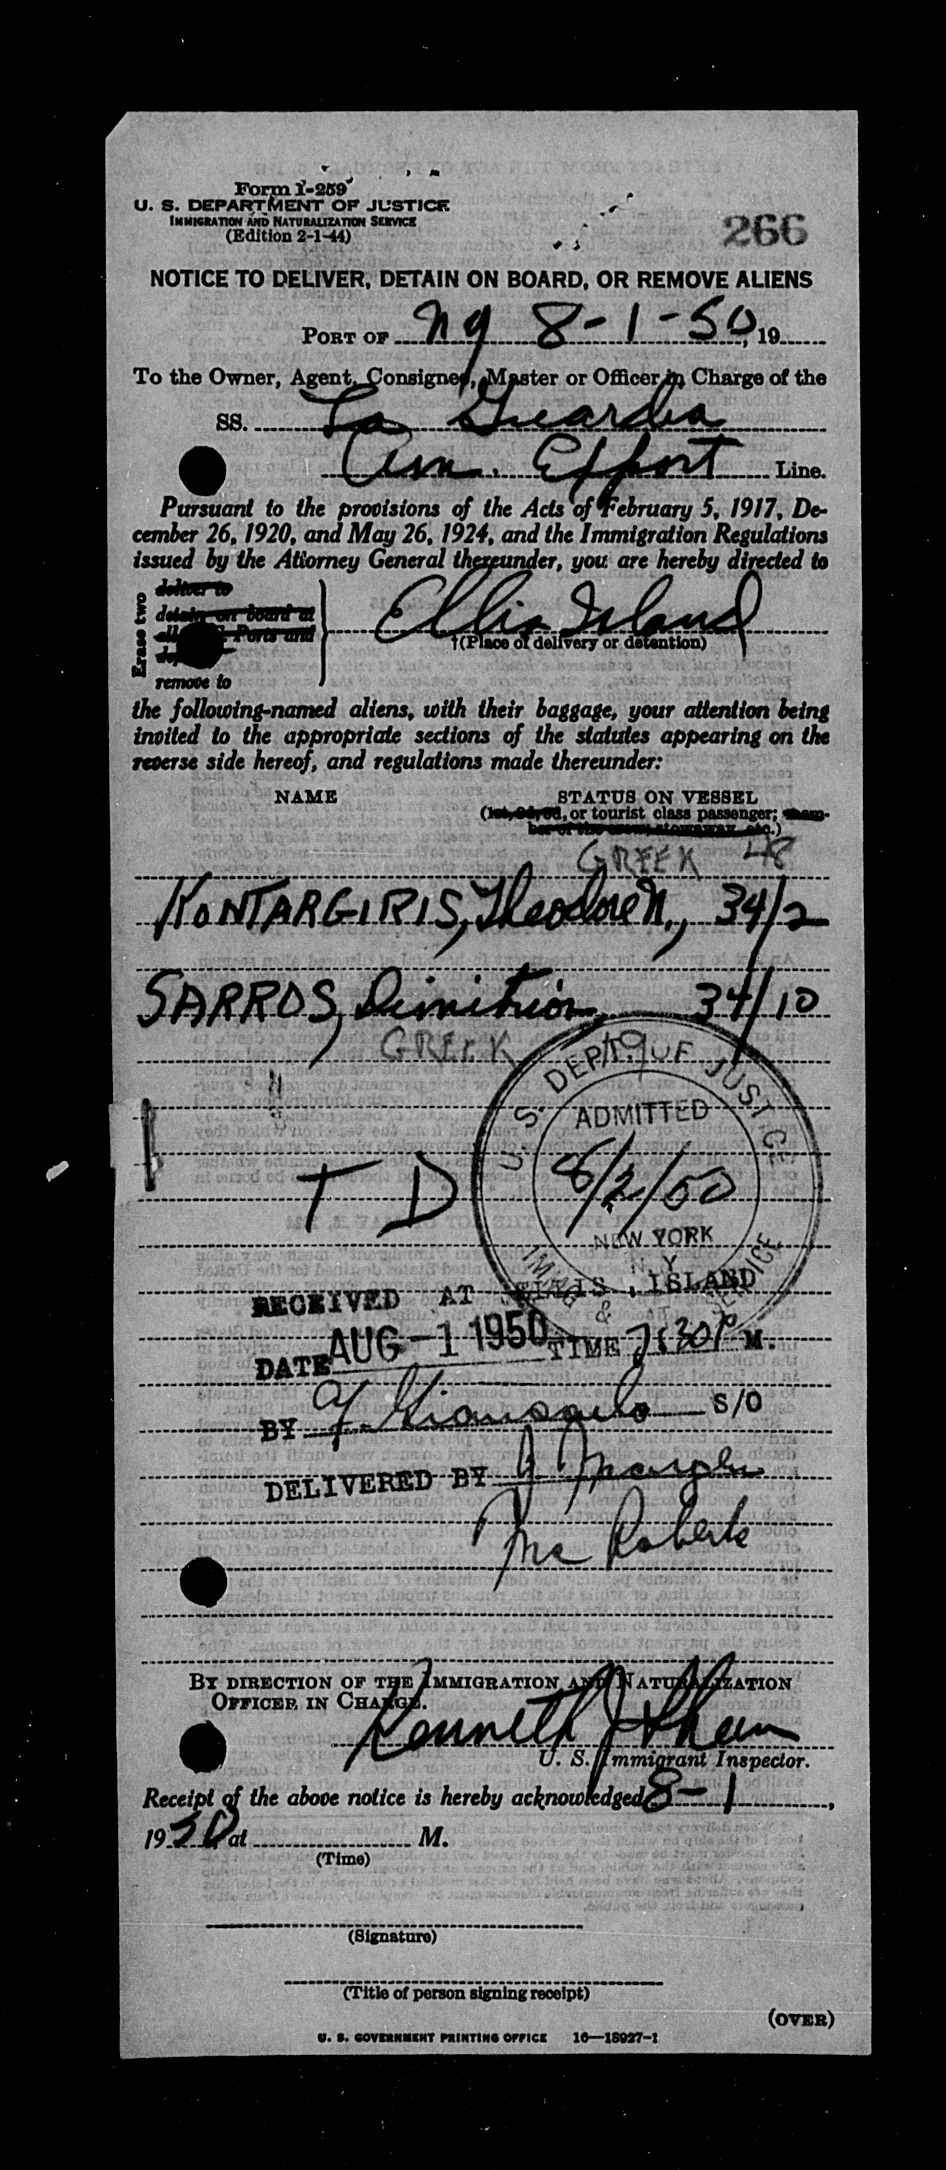 Form I-259
U. S. DEPARTMENT OF JUSTICE
IMMIGRATION AND NATURALIZATION SERVICE
(Edition 2-1-44)
266
NOTICE TO DELIVER, DETAIN ON BOARD, OR REMOVE ALIENS
PORT OF NY 8-1-50, 19
To the Owner, Agent, Consignee, Master or Officer in Charge of the
SS. La Guardia
Am. Export Line.
Pursuant to the provisions of the Acts of February 5, 1917, De-
cember 26, 1920, and May 26, 1924, and the Immigration Regulations
issued by the Attorney General thereunder, you are hereby directed to
Erase two
deliver to
detain on board at
all Ports and
remove to
Ellis Island
†(Place of delivery or detention)
the following-named aliens, with their baggage, your attention being
invited to the appropriate sections of the statutes appearing on the
reverse side hereof, and regulations made thereunder:
NAME STATUS ON VESSEL
(1st, 2d, 3d, or tourist class passenger; mem-
ber of the crew, stowaway, etc.)
GREEK 48
KONTARGIRIS, Theodore N., 34/2
SARROS, Dimitrios, 34/10
GREEK 19
U. S. DEPT. OF JUSTICE
ADMITTED
8/2/50
NEW YORK
N. Y.
IMMG & NAT SERVICE
T D
RECEIVED AT ELLIS ISLAND
DATE AUG -1 1950 TIME 7:30 P M.
BY S/O
DELIVERED BY J Murphy
Mc Roberts
BY DIRECTION OF THE IMMIGRATION AND NATURALIZATION
OFFICER IN CHARGE.
Kenneth J Shea
U. S. Immigrant Inspector.
Receipt of the above notice is hereby acknowledged 8-1,
1950, at M.
(Time)
(Signature)
(Title of person signing receipt)
(OVER)
U. S. GOVERNMENT PRINTING OFFICE 16—18927-1